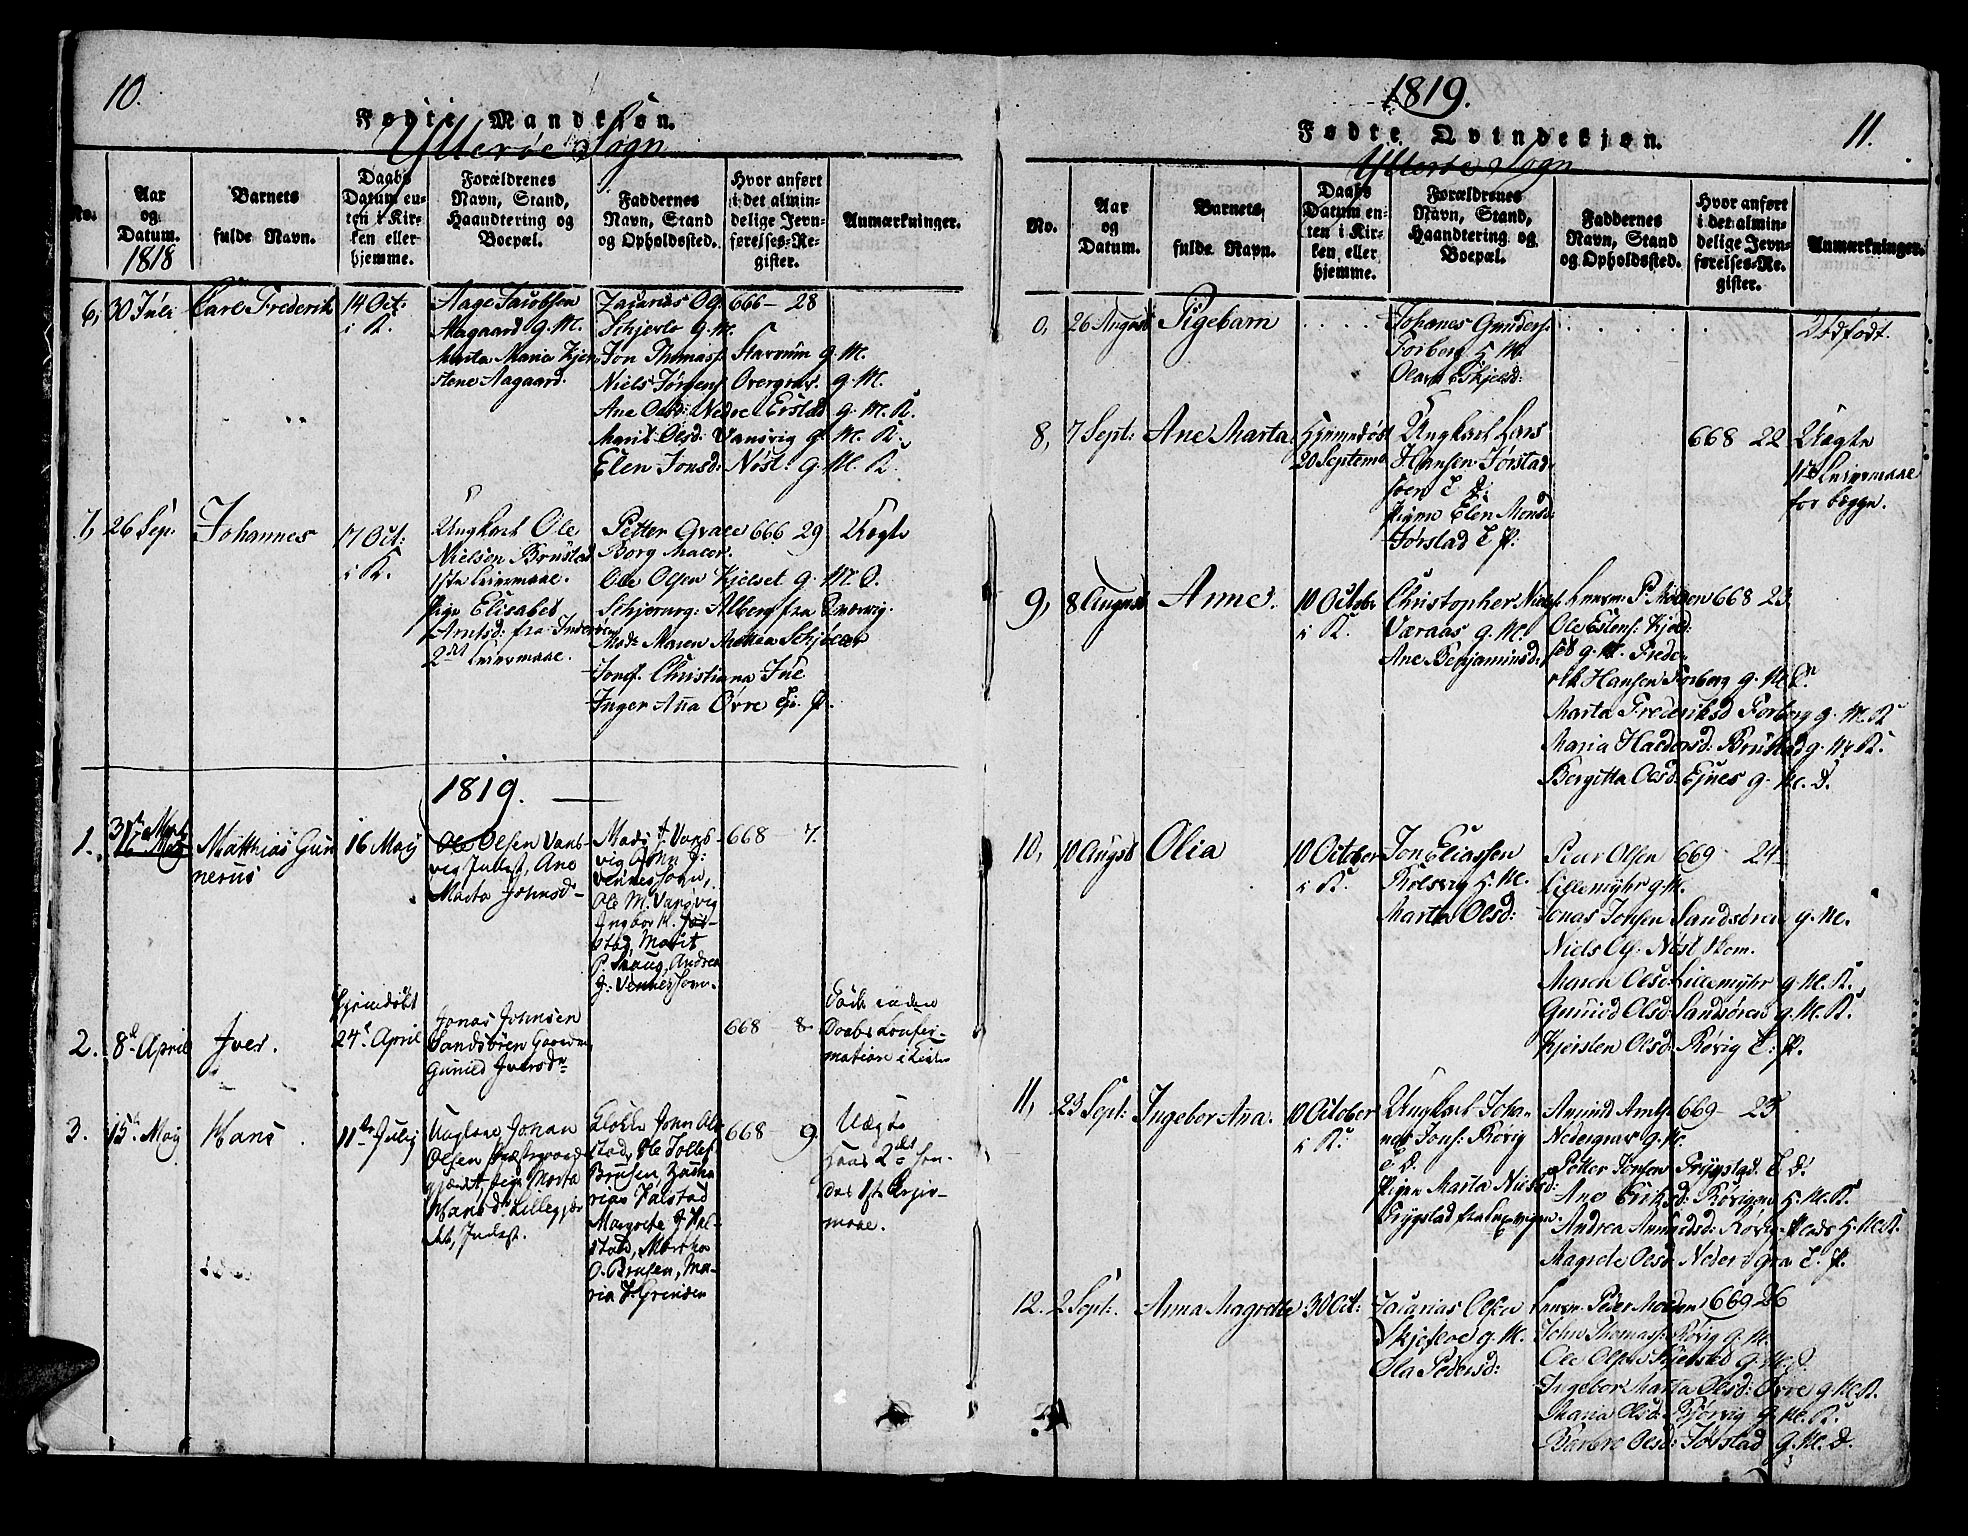 10.
Fødte Mandkjøn.
Ytterøe Sogn
No.
Aar
og
Datum.
1818
Barnets
fulde Navn.
Daabs
Datum en-
ten i Kir-
ken eller
hjemme.
Forældrenes
Navn, Stand,
Haandtering og
Boepæl.
Faddernes
Navn, Stand
og Opholdssted.
Hvor anført
i det almin-
delige Jevn-
førelses-Re-
gister.
Anmærkninger.
6, 30 Juli
Carl Frederik
14 Oct.
i K.
Aage Jacobsen
Aagaard g. M.
Marta Maria Kjer
stene Aagaard.
Zacarias Ol:
Schjevlo g. M.
Jon Thomass: Stavrum g. M.
Niels Jørgens: Overgrav. g. M.
Ane Olsd: Nedre Erstad g. M. K.
Marit Olsd: Vansvig g. M. K.
Elen Jonsd: Nøst: g. M. K.
666 - 28
7, 26 Sep.
Johannes
17 Oct:
i K.
Ungkarl Ole
Nielsen Brustad
1ste Leiermaal.
Pige Elisabet
Arntsd: fra Inderøen
2det Leiermaal.
Petter Grave
Borg Macer.
Ole Olsen Kjelset g. M. D.
Schjerurg: Alberg fra
Mads Maren
Jomf. Christiana Jüe
Inger Aña Øvre P.
666 29
Uægte
1819.
1.
Matthias Gun
nerus
16 Maij
Ole Olsen Vans-
vig Indest, Ane
Marta Johnsd-
Mads J Vans-
vig John J:
Vennessovn,
Ole M. Vansvig
Ingbor K. Jør-
stad, Marit
P. Snaug, Andrea
J: Vennessovn.
668 - 7.
2. 8de April
Iver.
Hjemdøbt
24e April
Jonas Johnsen
Sandsören
Guned Iversdr
668 - 8.
Daabs Confir-
mation i Kirk
3. 15de Maij
Hans
11te Julij
Ungkarl Johan
Olsen Præstegaard
gjædet, Pige Marta
Hansdr Lillegjær
det, Indest.
Klokk: John Ol
stad, He Tollef
Brusen Zacha
rias Halstad
Margrete J Hal
stad, Martha
O. Brusen, Ma-
ria H: Grinden
668 - 9.
Uægte
Hans 2det hen-
des 1ste Lejer-
maal.
1819.
11.
Fødte Qvindekjøn.
Ytterøe Sogn
No.
Aar
og
Datum.
Barnets
fulde Navn.
Daabs
Datum en-
ten i Kir-
ken, eller
hjemme.
Forældrenes
Navn, Stand,
Haandtering og
Boepæl.
Faddernes
Navn, Stand
og Opholdssted.
Hvor anført
i det almin-
delige Jevn-
førelses-Re-
gister.
Anmærkninger.
0, 26 August
Pigebarn
Johanes Gunders:
Forberg H. M.
Olava Eskjelsd:
Dødfødt.
8, 7 Sept:
Ane Marta
Hjemmedøbt
20 Septemb
Ungkarl Lars
Hansen Jørstad-
søen E D.
Pigen Elen Monsd:
Jørstad E P.
668 22
Uægte
1ste Leiermaal
for begge.
9, 8 August
Anne.
10 October
i K.
Christopher Niels:
Væraas g. M.
Ane Benjaminsd:
Lensm: P. Molden
Ole Estens: Kjeld-
set g. M. Frede-
rik Hansen Forberg g. M. D.
Marta Frederiksd Forberg g. M. K
Maria Haldorsd: Brustad g. M. K.
Bergitta Olsd: Ejnes g. M. D.
668 23
10, 10 Augst
Olia
10 October
i K.
Jon Eliassen
Rolsvig H. M.
Marta Olsd:
Peer Olsen
Lillemyhr g. M.
Jonas Johsen Sandsøren g. M.
Niels Ol: Nøst Skom.
Maren Olsd: Lillemyhr g. M. K.
Gunild Olsd: Sandsøren g. M. K.
Kjersten Olsd: Røvig E: P.
669 - 24
11, 23 Sept:
Ingebor Aña.
10 October
i K:
Ungkarl Johan-
nes Jons: Røvig
E D.
Pigen Marta Nielsd:
Trygstad fra
Amund Arnts:
Nedergrav g. M.
Petter Jonsen Trygstad. E. D.
Ane Eriksd: Røvigen H. M. K.
Andrea Amundsd: Røvig H. M. K.
Magrete Olsd: Neder Gra E. P.
669 - 25
12. 2 Sept:
Anna Magrette
30 Oct:
Zacarias Olsen
Skjefloe g. M.
Ola Pedersd:
Lensm. Peder Molden
John Thomass: Røvig g. M.
Ole Olsen Kjelsted g. M. D.
Ingebor Marta Olsd: Øvre g. M. K.
Maria Olsd: Rjørvig g. M. K.
Barbro Olsd: Jørstad g. M. D.
669 26